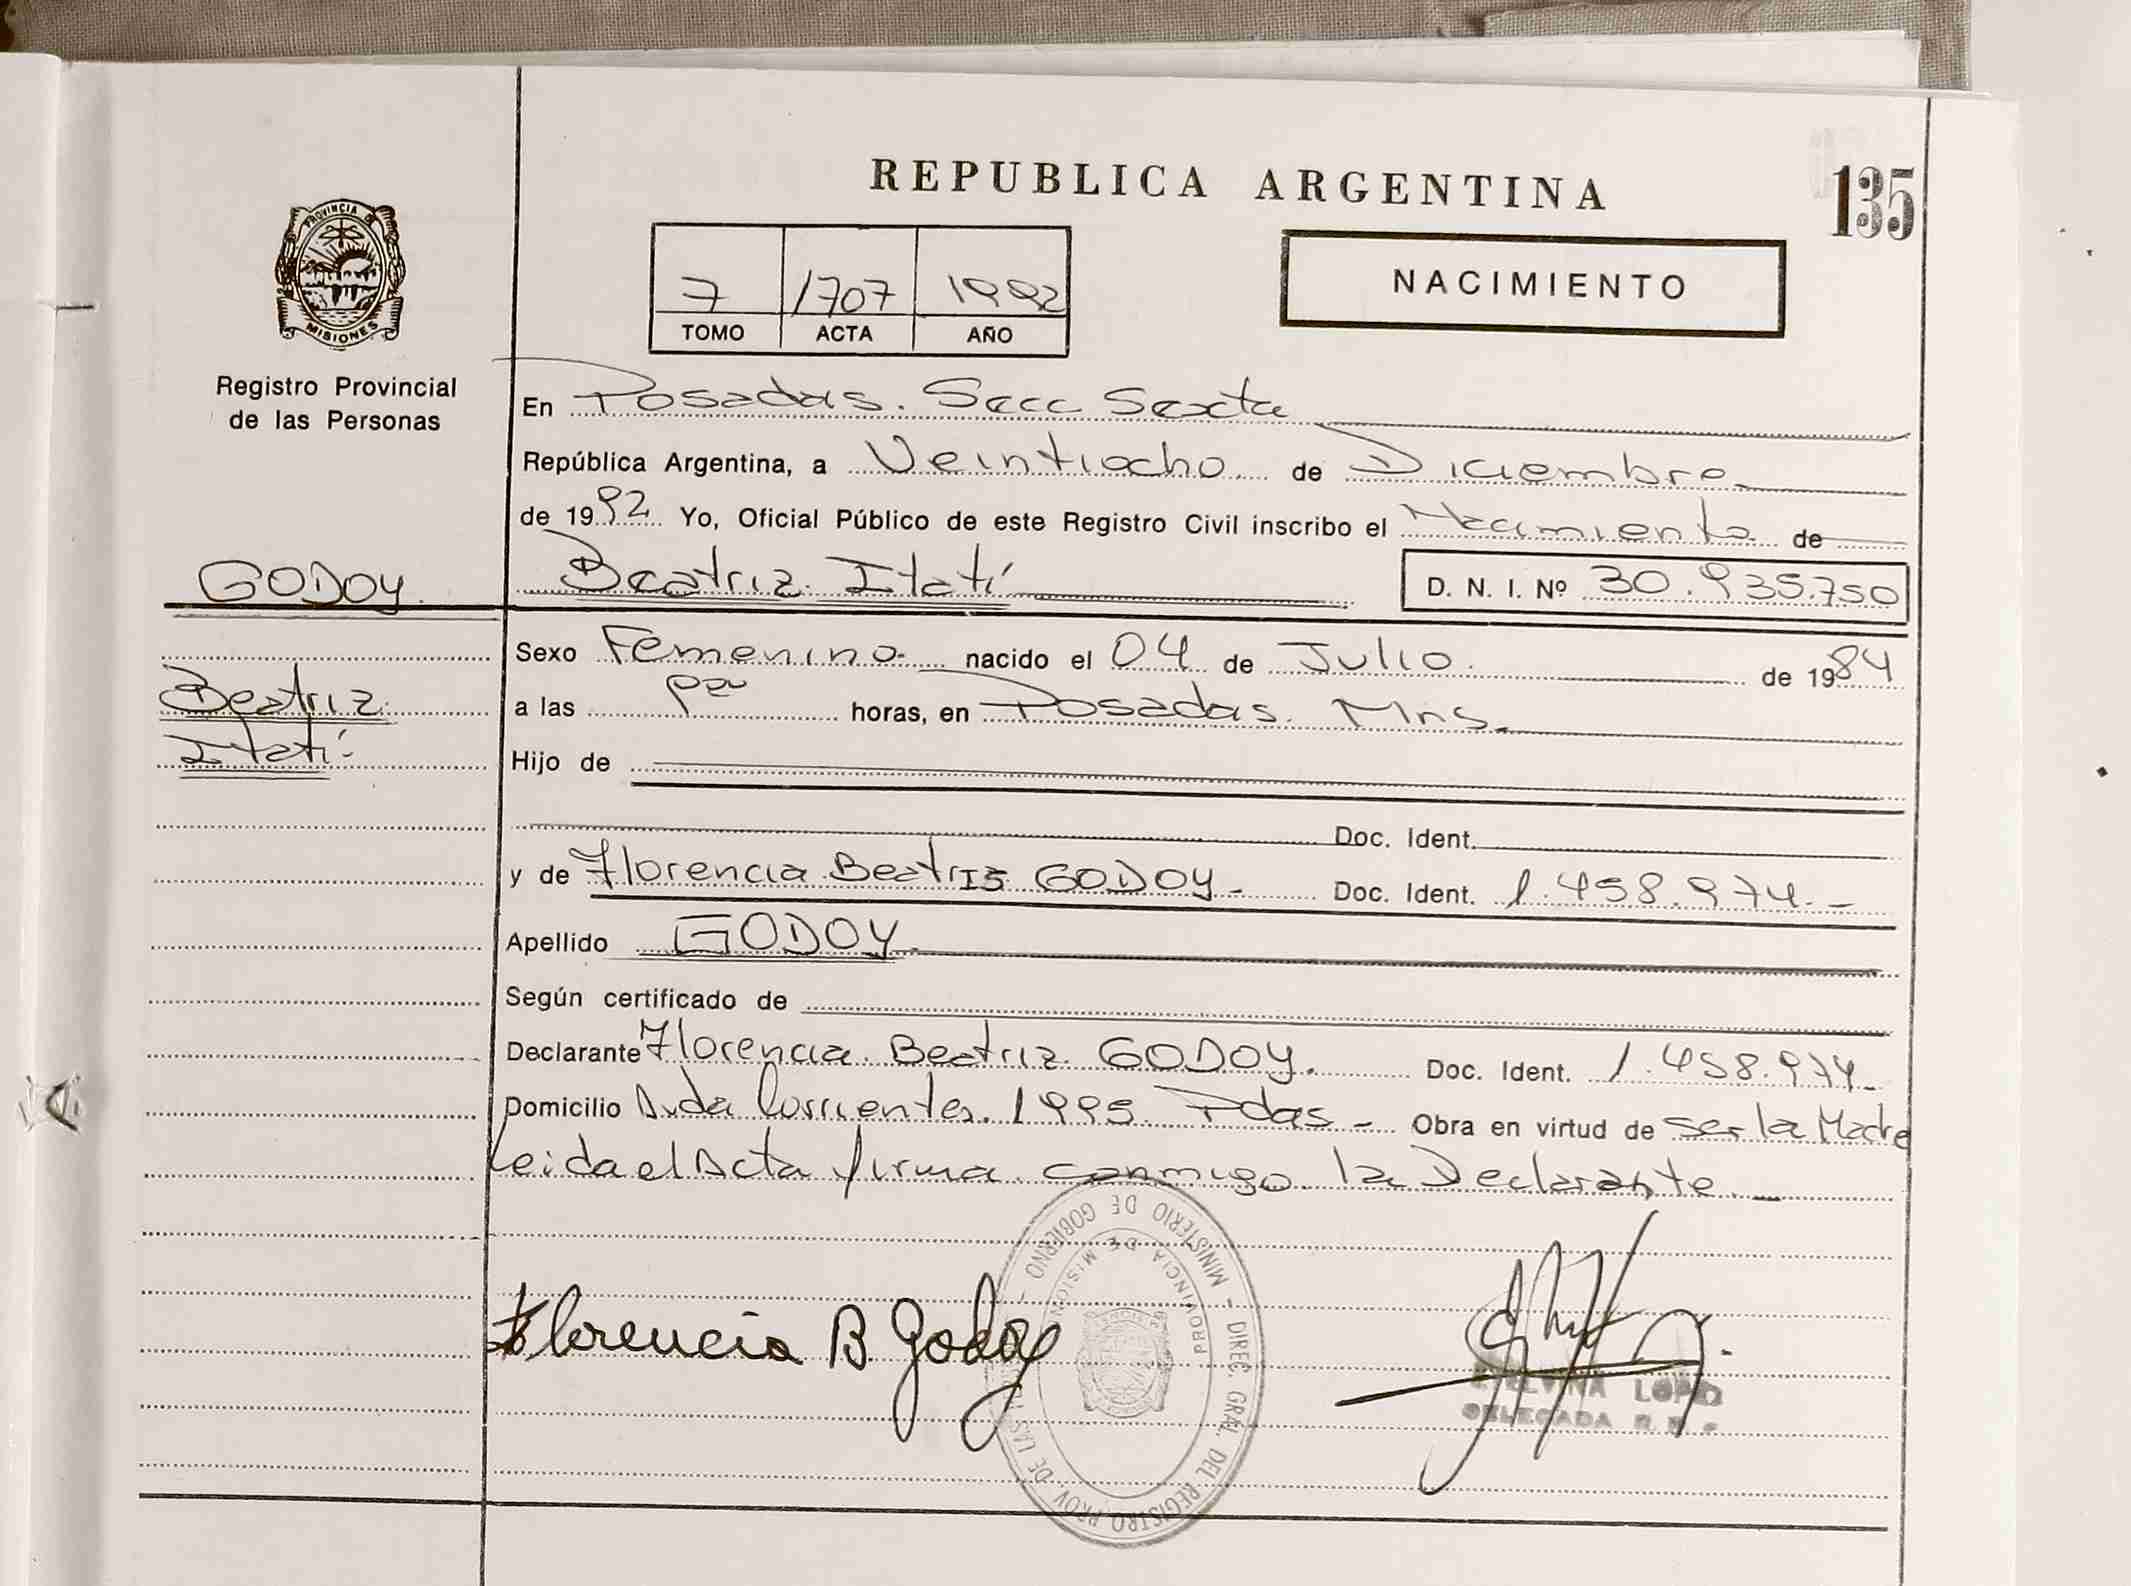 REPUBLICA ARGENTINA
135
PROVINCIA DE
MISIONES
Registro Provincial
de las Personas
7 1707 1992
TOMO ACTA AÑO
NACIMIENTO
En Posadas. Secc Sexta
República Argentina, a Veintiocho de Diciembre
de 1992 Yo, Oficial Público de este Registro Civil inscribo el Nacimiento de
GODOY.
Beatriz Itatí
D. N. I. Nº 30.935.750
Beatriz
Itatí
Sexo Femenino nacido el 04 de Julio de 1984
a las horas, en Posadas. Mns.
Hijo de
Doc. Ident.
y de Florencia Beatris GODOY - Doc. Ident. 1.458.974. -
Apellido GODOY.
Según certificado de
Declarante Florencia Beatriz GODOY. Doc. Ident. 1.458.974 -
Domicilio Avda Corrientes. 1995. Pdas - Obra en virtud de ser la Madre
Leida el Acta firma conmigo la Declarante. -
Florencia B. Godoy
MINISTERIO DE GOBIERNO - DIREC. GRAL. DEL REGISTRO PROV DE LAS
PROVINCIA DE MISIONES
LOPEZ
DELEGADA